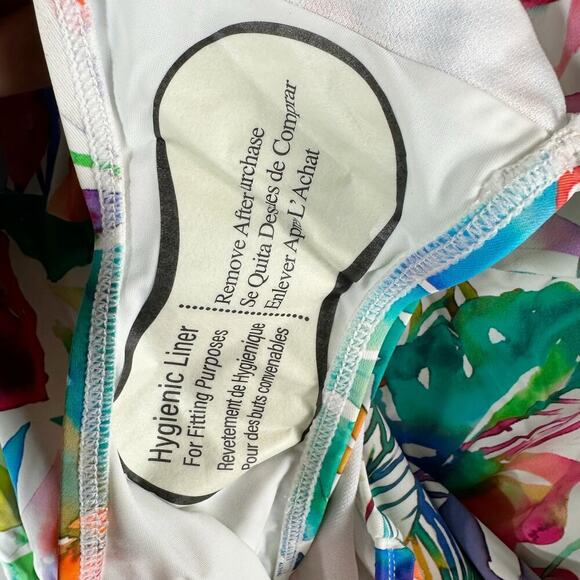 Hygienic Liner
For Fitting Purposes
Revetement de Hygienique
Pour des buts convenables
Remove After
Se Quita de Comprar
Enlever L'Achat